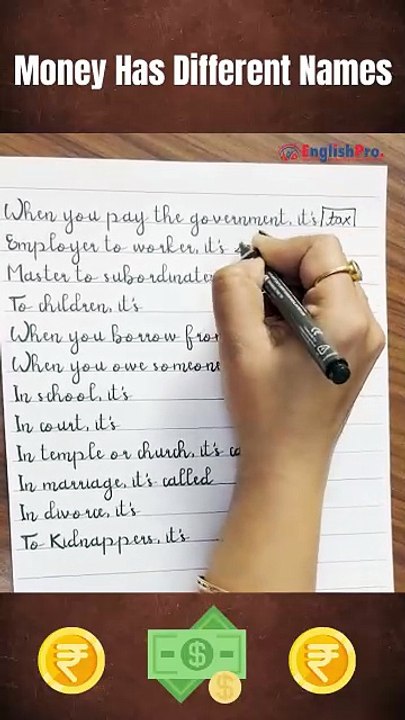 Money Has Different Names
EnglishPro.
When you pay the government, it's tax
Employer to worker, it's
Master to subordinate
To children, it's
When you borrow from
When you owe someone
In school, it's
In court, it's
In temple or church, it's
In marriage, it's called
In divorce, it's
To Kidnappers, it's